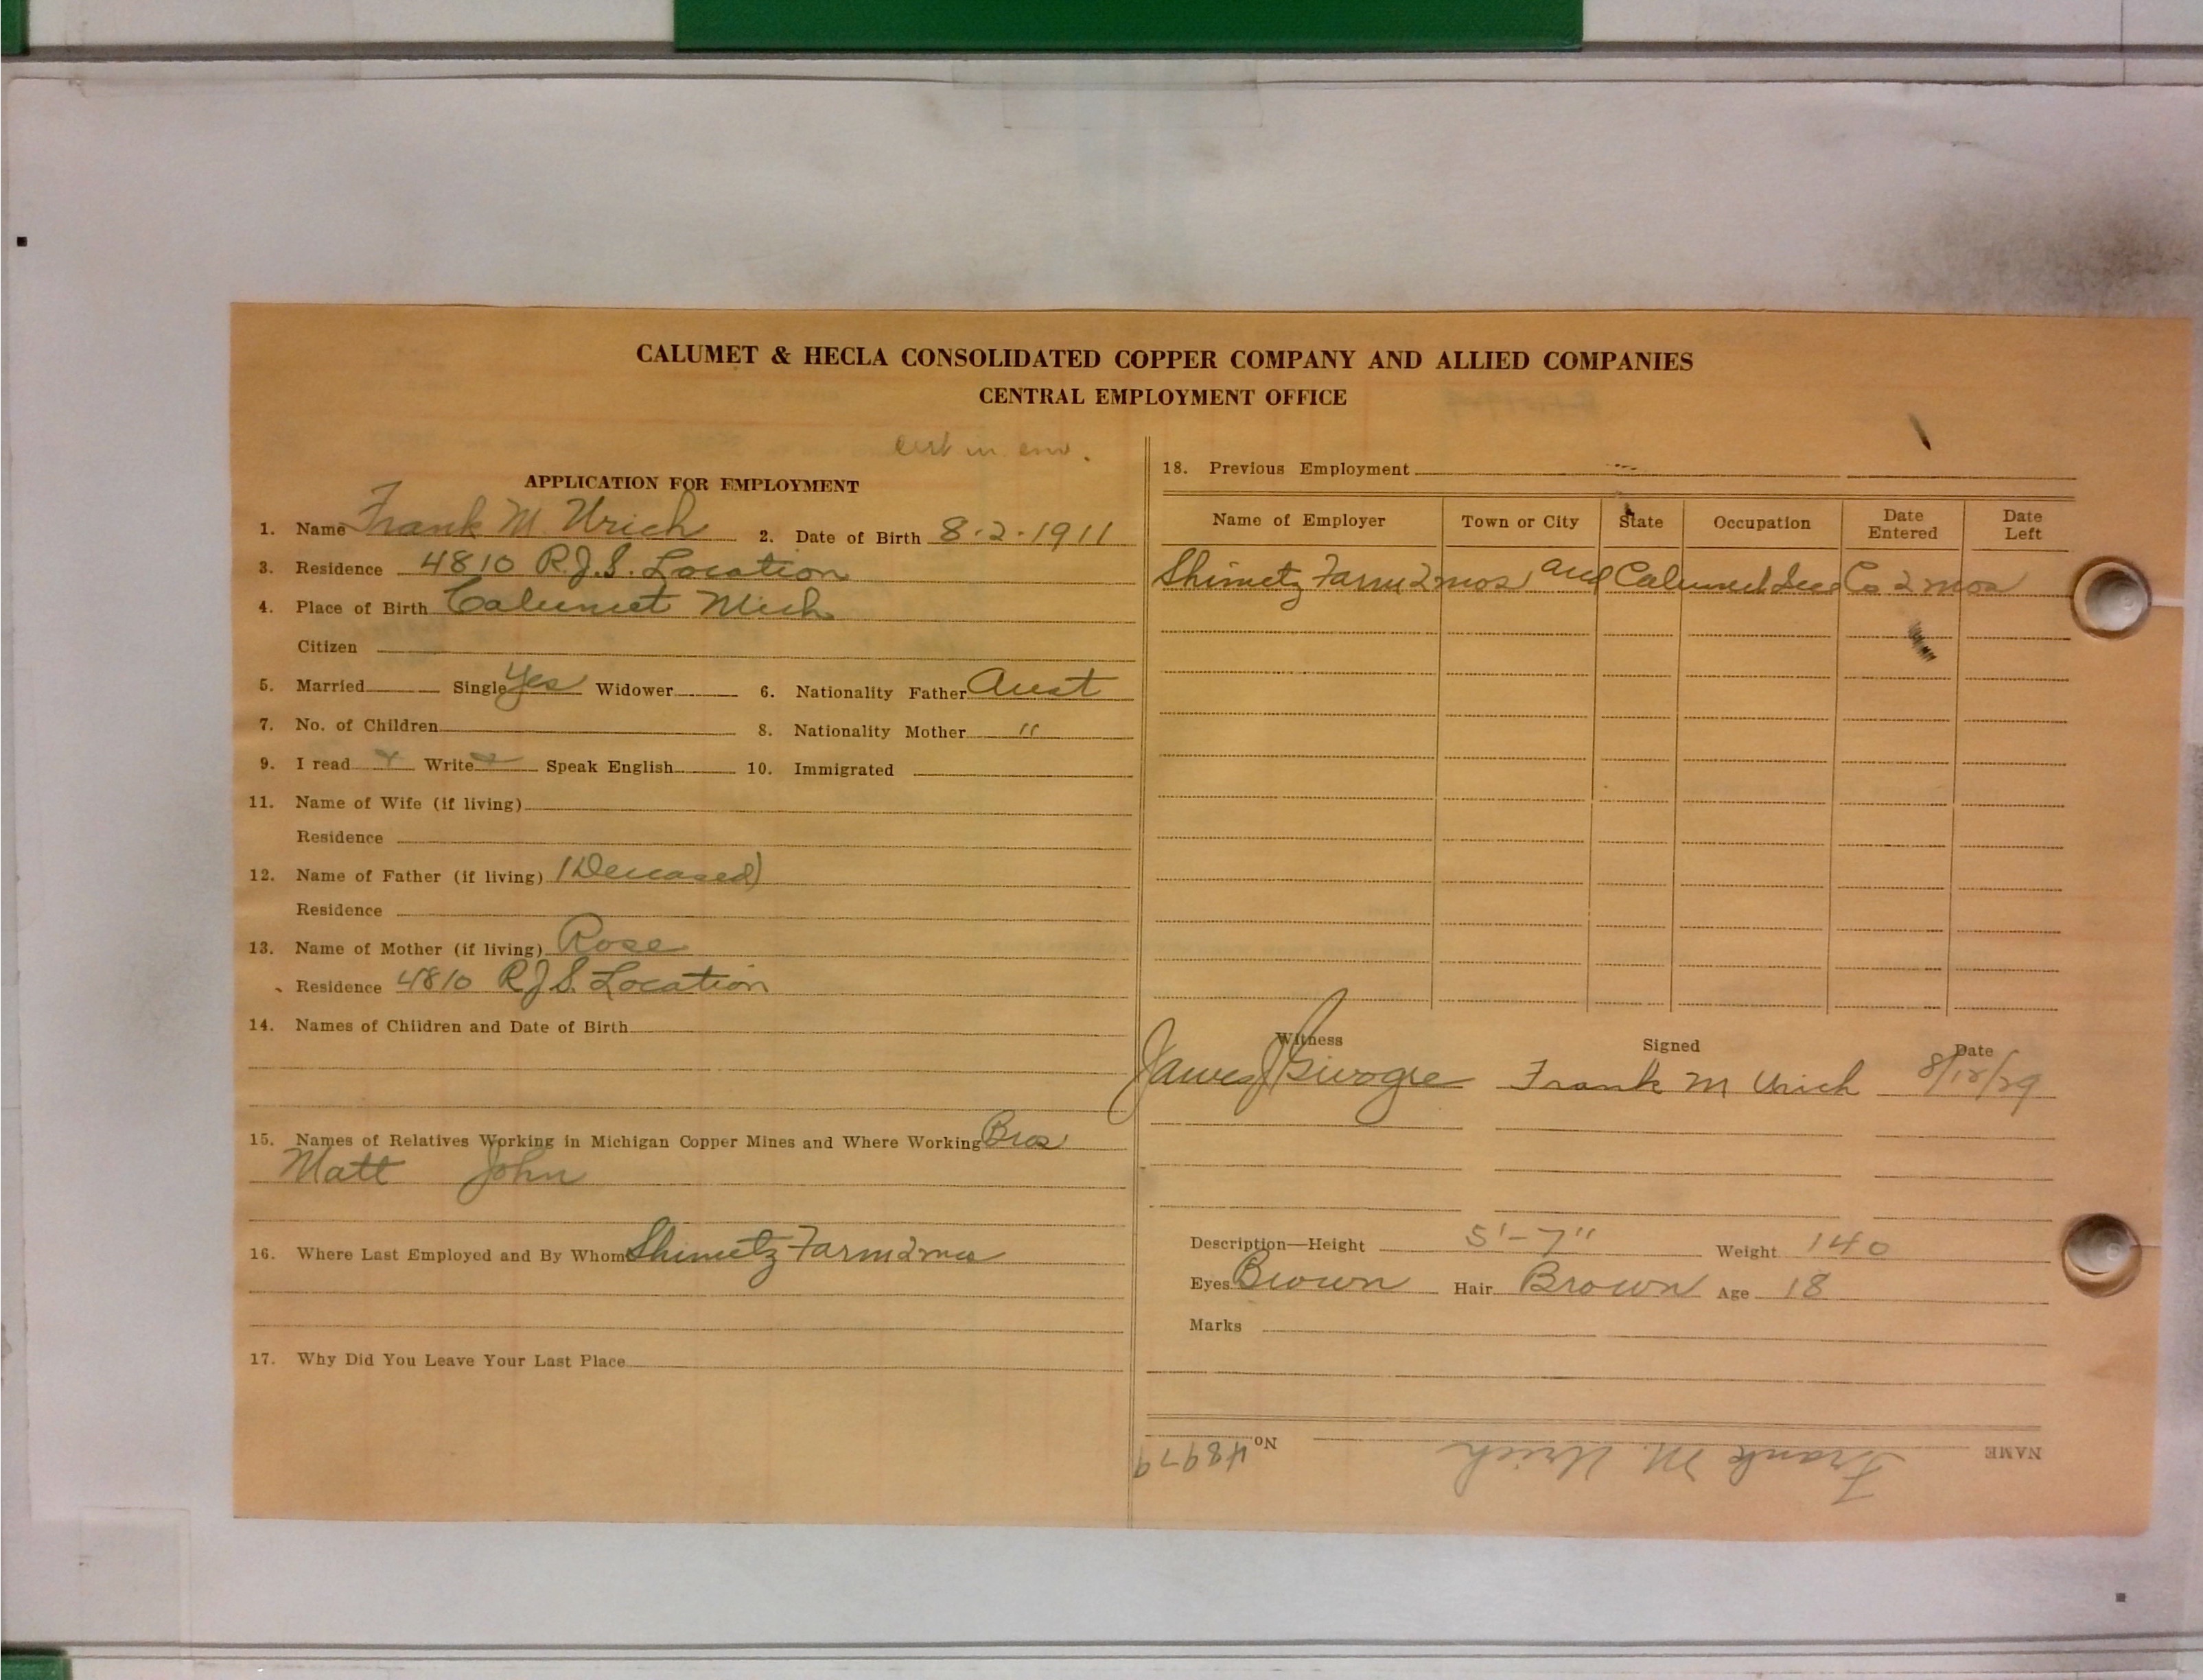 CALUMET & HECLA CONSOLIDATED COPPER COMPANY AND ALLIED COMPANIES
CENTRAL EMPLOYMENT OFFICE
cert in env.
APPLICATION FOR EMPLOYMENT
1. Name Frank M. Urich 2. Date of Birth 8-2-1911
3. Residence 4810 R.J.S. Location
4. Place of Birth Calumet Mich
Citizen
5. Married Single Yes Widower 6. Nationality Father Aust
7. No. of Children 8. Nationality Mother "
9. I read Write Speak English 10. Immigrated
11. Name of Wife (if living)
Residence
12. Name of Father (if living) (Deceased)
Residence
13. Name of Mother (if living) Rose
Residence 4810 R.J.S. Location
14. Names of Children and Date of Birth
15. Names of Relatives Working in Michigan Copper Mines and Where Working Bros
Matt John
16. Where Last Employed and By Whom Shimetz Farm 2 mos
17. Why Did You Leave Your Last Place
18. Previous Employment
Name of Employer Town or City State Occupation Date Entered Date Left
Shimetz Farm 2 mos and Calumet Co 2 mos
Witness Signed Date
James Frank M Urich
Description—Height 5'-7" Weight 140
Eyes Brown Hair Brown Age 18
Marks
NAME Frank M. Urich No 48979